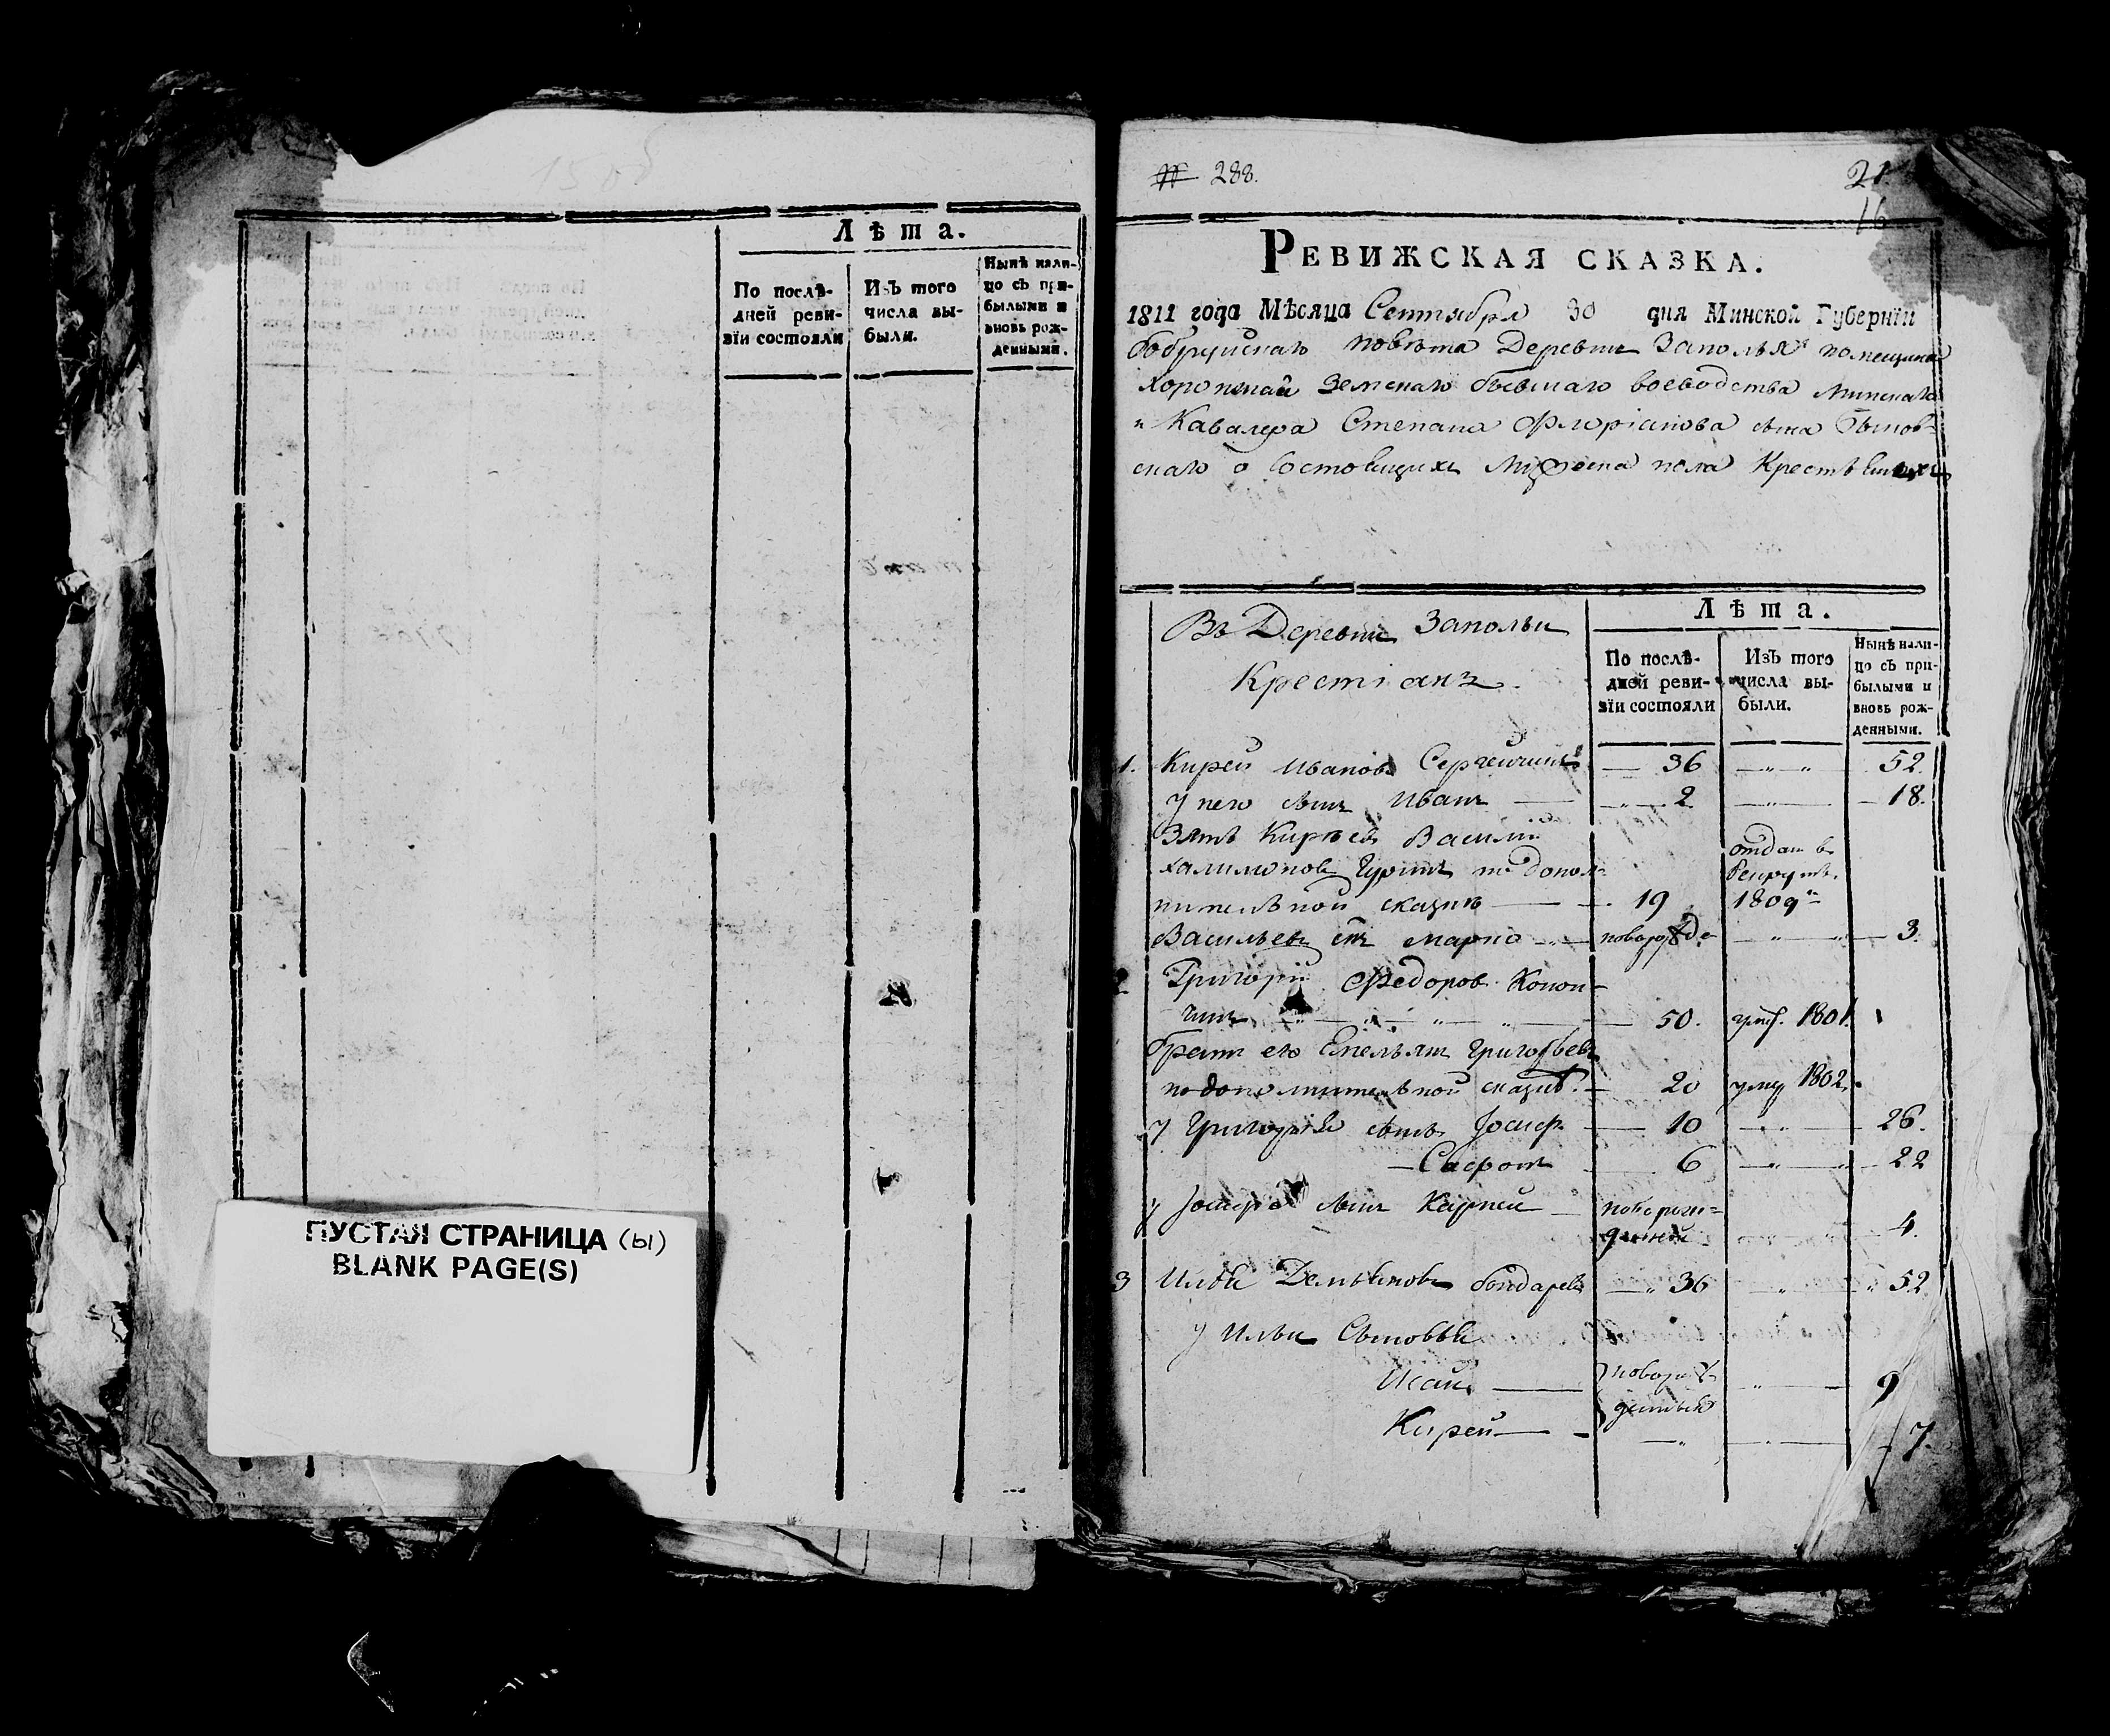 Лѣта.
По послѣ-
дней реви-
зїи состояли
ИзЪ того
числа вы-
были.
Нынѣ нали-
цо сЪ при-
былыми и
вновь рож-
денными.
ПУСТАЯ СТРАНИЦА (ы)
BLANK PAGE(S)
288.
21
16
РЕВИЖСКАЯ СКАЗКА.
1811 года МѢсяца Сентября 30 дня Минской Губернїи
Бобруйскаго повѣта Деревни Заполья помещика
хоронжаго Земскаго бывшаго воеводства Минскаго
и Кавалера Степана Флорїанова сына
о состоящихъ Мужеска пола Крестьянахъ
Въ Деревни Запольи
Крестїанъ
Лѣта.
По послѣ-
дней реви-
зїи состояли
ИзЪ того
числа вы-
были.
Нынѣ нали-
цо сЪ при-
былыми и
вновь рож-
денными.
1. Кирей Ивановъ 36 52.
у него сынъ Иванъ 2 18.
Зять Киреевъ Василїй отданъ в
рекруты
по допол-
нительной сказкѣ 19 1809
Васильевъ сынъ Марко новорожде 3.
2 Григорїй Федоровъ Конон-
чикъ 50. умер. 1801.
братъ его Емельянъ Григорьевъ
по дополнительной сказкѣ 20 умер 1802.
у Григорїя сынъ Іосиф 10 26.
Сафонъ 6 22
у Іосифа сынъ Карней новорож=
денной 4.
3 Илья Демьяновъ Бондаревъ 36 52.
у Ильи Сыновья
Исай новорож
денныя 9
Кирей 7.